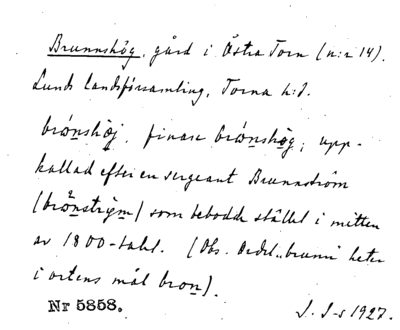 Brunnshög, gård i Östra Torn (n:r 14).
Lunds landsförsamling, Torna h:d.
brónshøj, finare brónshøg; upp-
kallad efter en sergeant Brunnström
(brònstrø̀m) som bebodde stället i mitten
av 1800-talet. (Obs. Ordet "brunn" heter
i ortens mål bron).
Nr 5858.
J. J-s 1927.